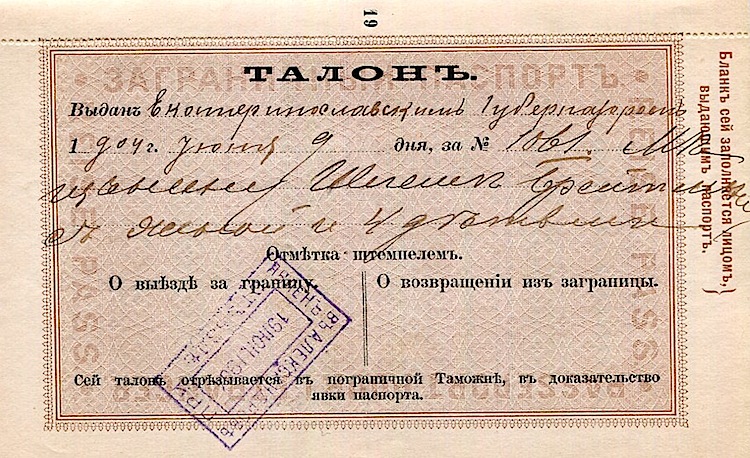 19
ЗАГРАНИЧНЫЙ ПАСПОРТЪ
ТАЛОНЪ.
Выданъ Екатеринославскимъ Губернаторомъ
1904 г. Июня 9 дня, за № 1061.
съ женой и 4 дѣтьми
Отмѣтка штемпелемъ.
О выѣздѣ за границу.
О возвращеніи изъ заграницы.
ЯВЛЕНЪ ВЪ АЛЕКСАНДР
19 ІЮЛ 190
Сей талонъ отрѣзывается въ пограничной Таможнѣ, въ доказательство
явки паспорта.
Бланкъ сей заполняется лицомъ,
выдающимъ паспортъ.